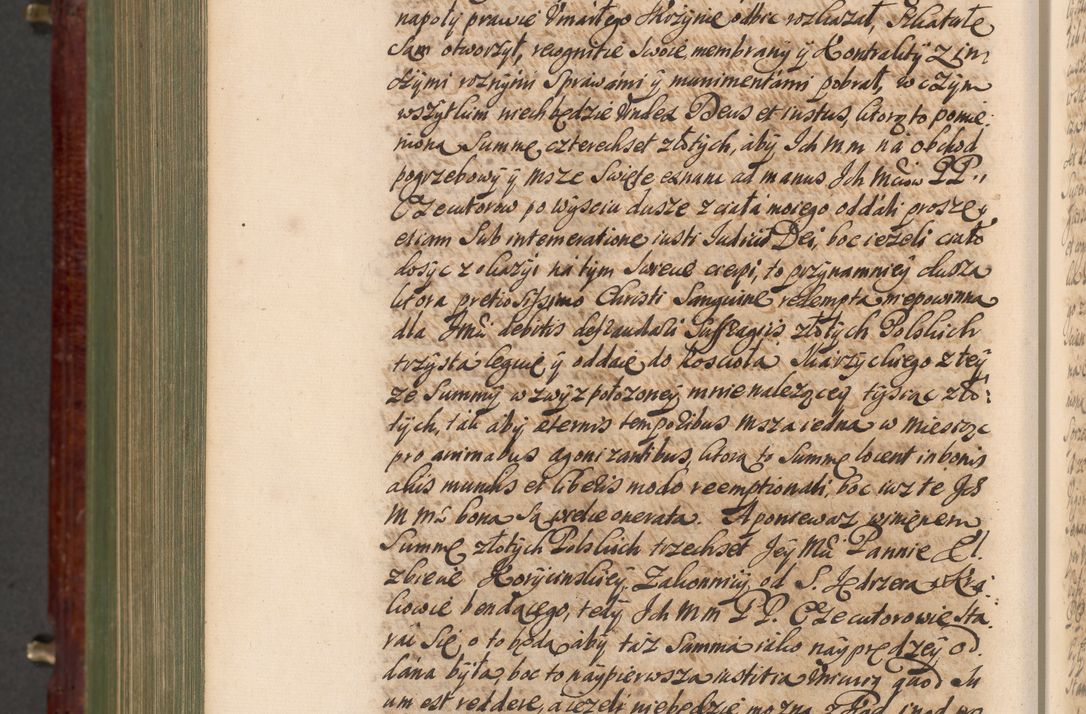 napoły prawie Umarłego Skrzynie odbić rozkazał, Szkatułę
Sam otworzył, recognitie Swoie membrany ÿ Kontrakty z in-
szÿmi roznÿmi Sprawami ÿ munimentami pobrał, w czÿm
wszÿtkim niech będzie Iudex Deus et iustus, ktorą to pomie-
niona Summę czterechset złotÿch, abÿ Ich Mm na obchod
pogrzebowÿ ÿ Msze Swięte ad manus Ich Mciow PP.
Exekutorow po wÿsciu dusze z ciała moiego oddali proszę
etiam Sub intemeratione iusti Iudicii Dei, bo ieżeli ciało
dosÿc z okazÿi na tÿm Swiecie cierpi, to przÿnamnieÿ dusza
ktora pretiosissimo Christi Sanguine redempta niepowinna
dla Imci debitis defraudari Suffragiis złotÿch Polskich
trzÿsta leguię ÿ oddaię do Koscioła z teÿ
ze Summÿ wzwÿz położoneÿ mnie należąceÿ tÿsiąc zło-
tÿch, tak abÿ æternis temporibus Msza iedna w Miesiąc
pro animabus agonizantibus, ktorą to Summę locent in bonis
aliis mundis et liberis modo reemptionali, boc iuz te Ich
M mci bona Są onerata. A poniewaz
Summę złotÿch Polskich trzechset Jeÿ Mci Pannie El-
zbiecie Korÿcinskieÿ Zakonnicÿ od S. Jędrzeia w Kra-
kowie bendącego, tedÿ Ich Mm PP. Exekutorowie sta-
rać Się o to będą abÿ taz Summa iako naÿprędzeÿ od-
dana bÿła, boc to naÿpierwsza iustitia Unicuiq quod Su
um est reddere, a ieżeli niebędzie można z